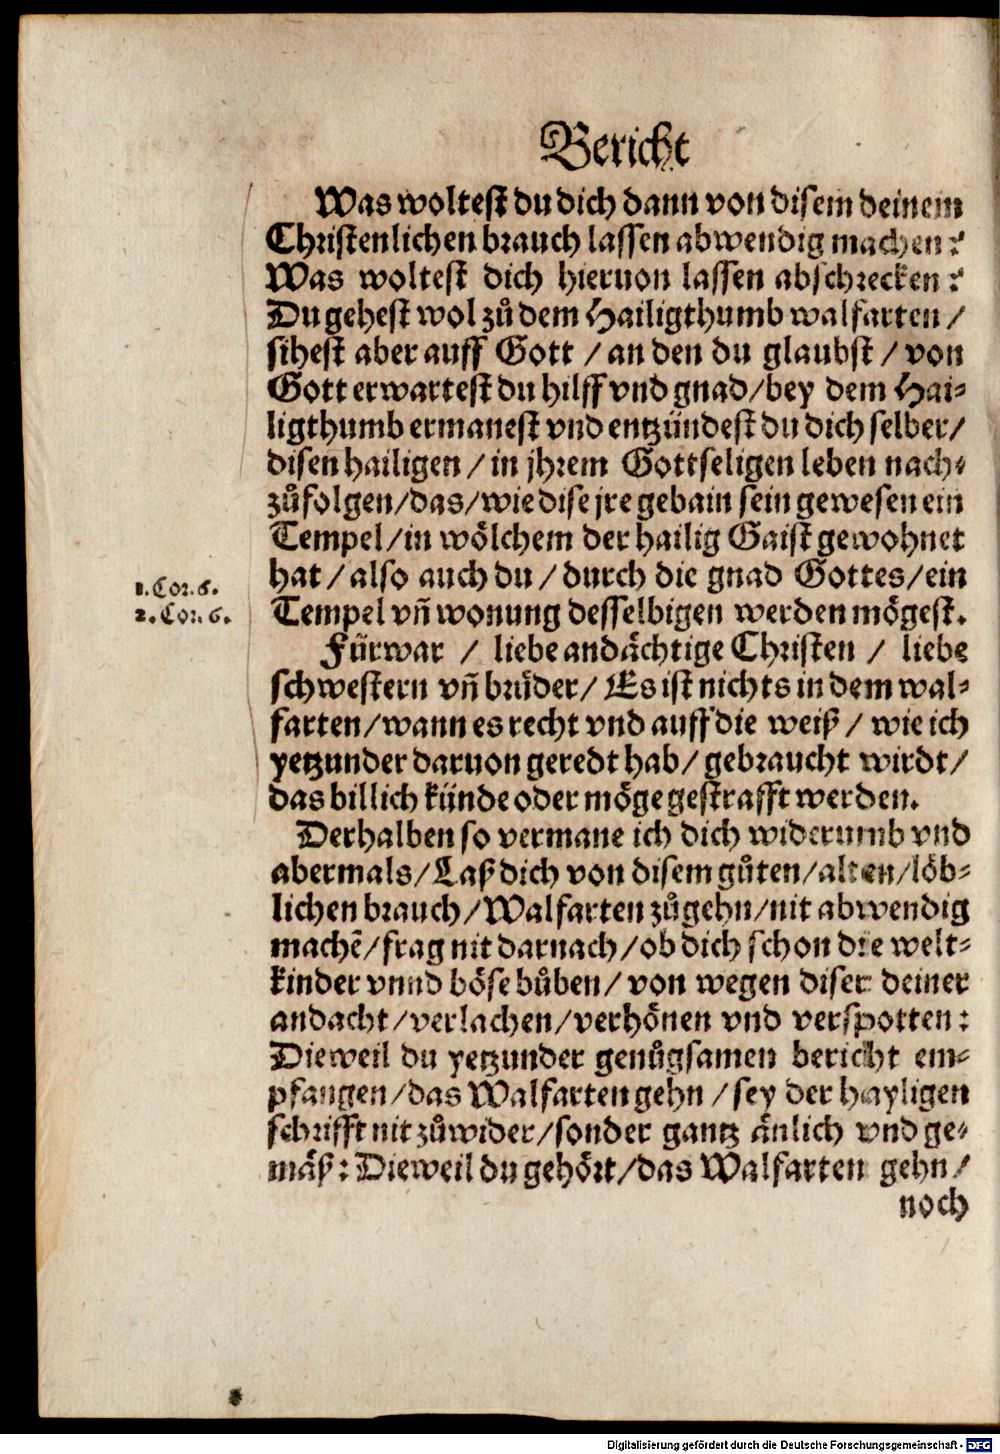 Bericht
Was woltest du dich dann von disem deinem
Christenlichen brauch lassen abwendig machen?
Was woltest dich hieruon lassen abschrecken?
Du gehest wol zů dem Hailigthumb walfarten /
sihest aber auff Gott / an den du glaubst / von
Gott erwartest du hilff vnd gnad/bey dem Hai-
ligthumb ermanest vnd entzündest du dich selber/
disen hailigen / in jhrem Gottseligen leben nach-
zůfolgen/das/wie dise jre gebain sein gewesen ein
Tempel/in wölchem der hailig Gaist gewohnet
hat / also auch du / durch die gnad Gottes/ein
1. Cor. 6.
Tempel vñ wonung desselbigen werden mögest.
2. Cor. 6.
Fürwar / liebe andächtige Christen / liebe
schwestern vñ brüder/ Es ist nichts in dem wal-
farten/wann es recht vnd auff die weiß / wie ich
yetzunder daruon geredt hab/ gebraucht wirdt/
das billich künde oder möge gestrafft werden.
Derhalben so vermane ich dich widerumb vnd
abermals/Laß dich von disem gůten/alten/löb-
lichen brauch/Walfarten zůgehn/nit abwendig
machẽ/frag nit darnach/ob dich schon die welt-
kinder vnnd böse bůben/ von wegen diser deiner
andacht/verlachen/verhönen vnd verspotten:
Dieweil du yetzunder genůgsamen bericht em-
pfangen/das Walfarten gehn /sey der hayligen
schrifft nit zůwider/sonder gantz änlich vnd ge-
mäß: Dieweil du gehört/das Walfarten gehn/
noch
Digitalisierung gefördert durch die Deutsche Forschungsgemeinschaft - DFG